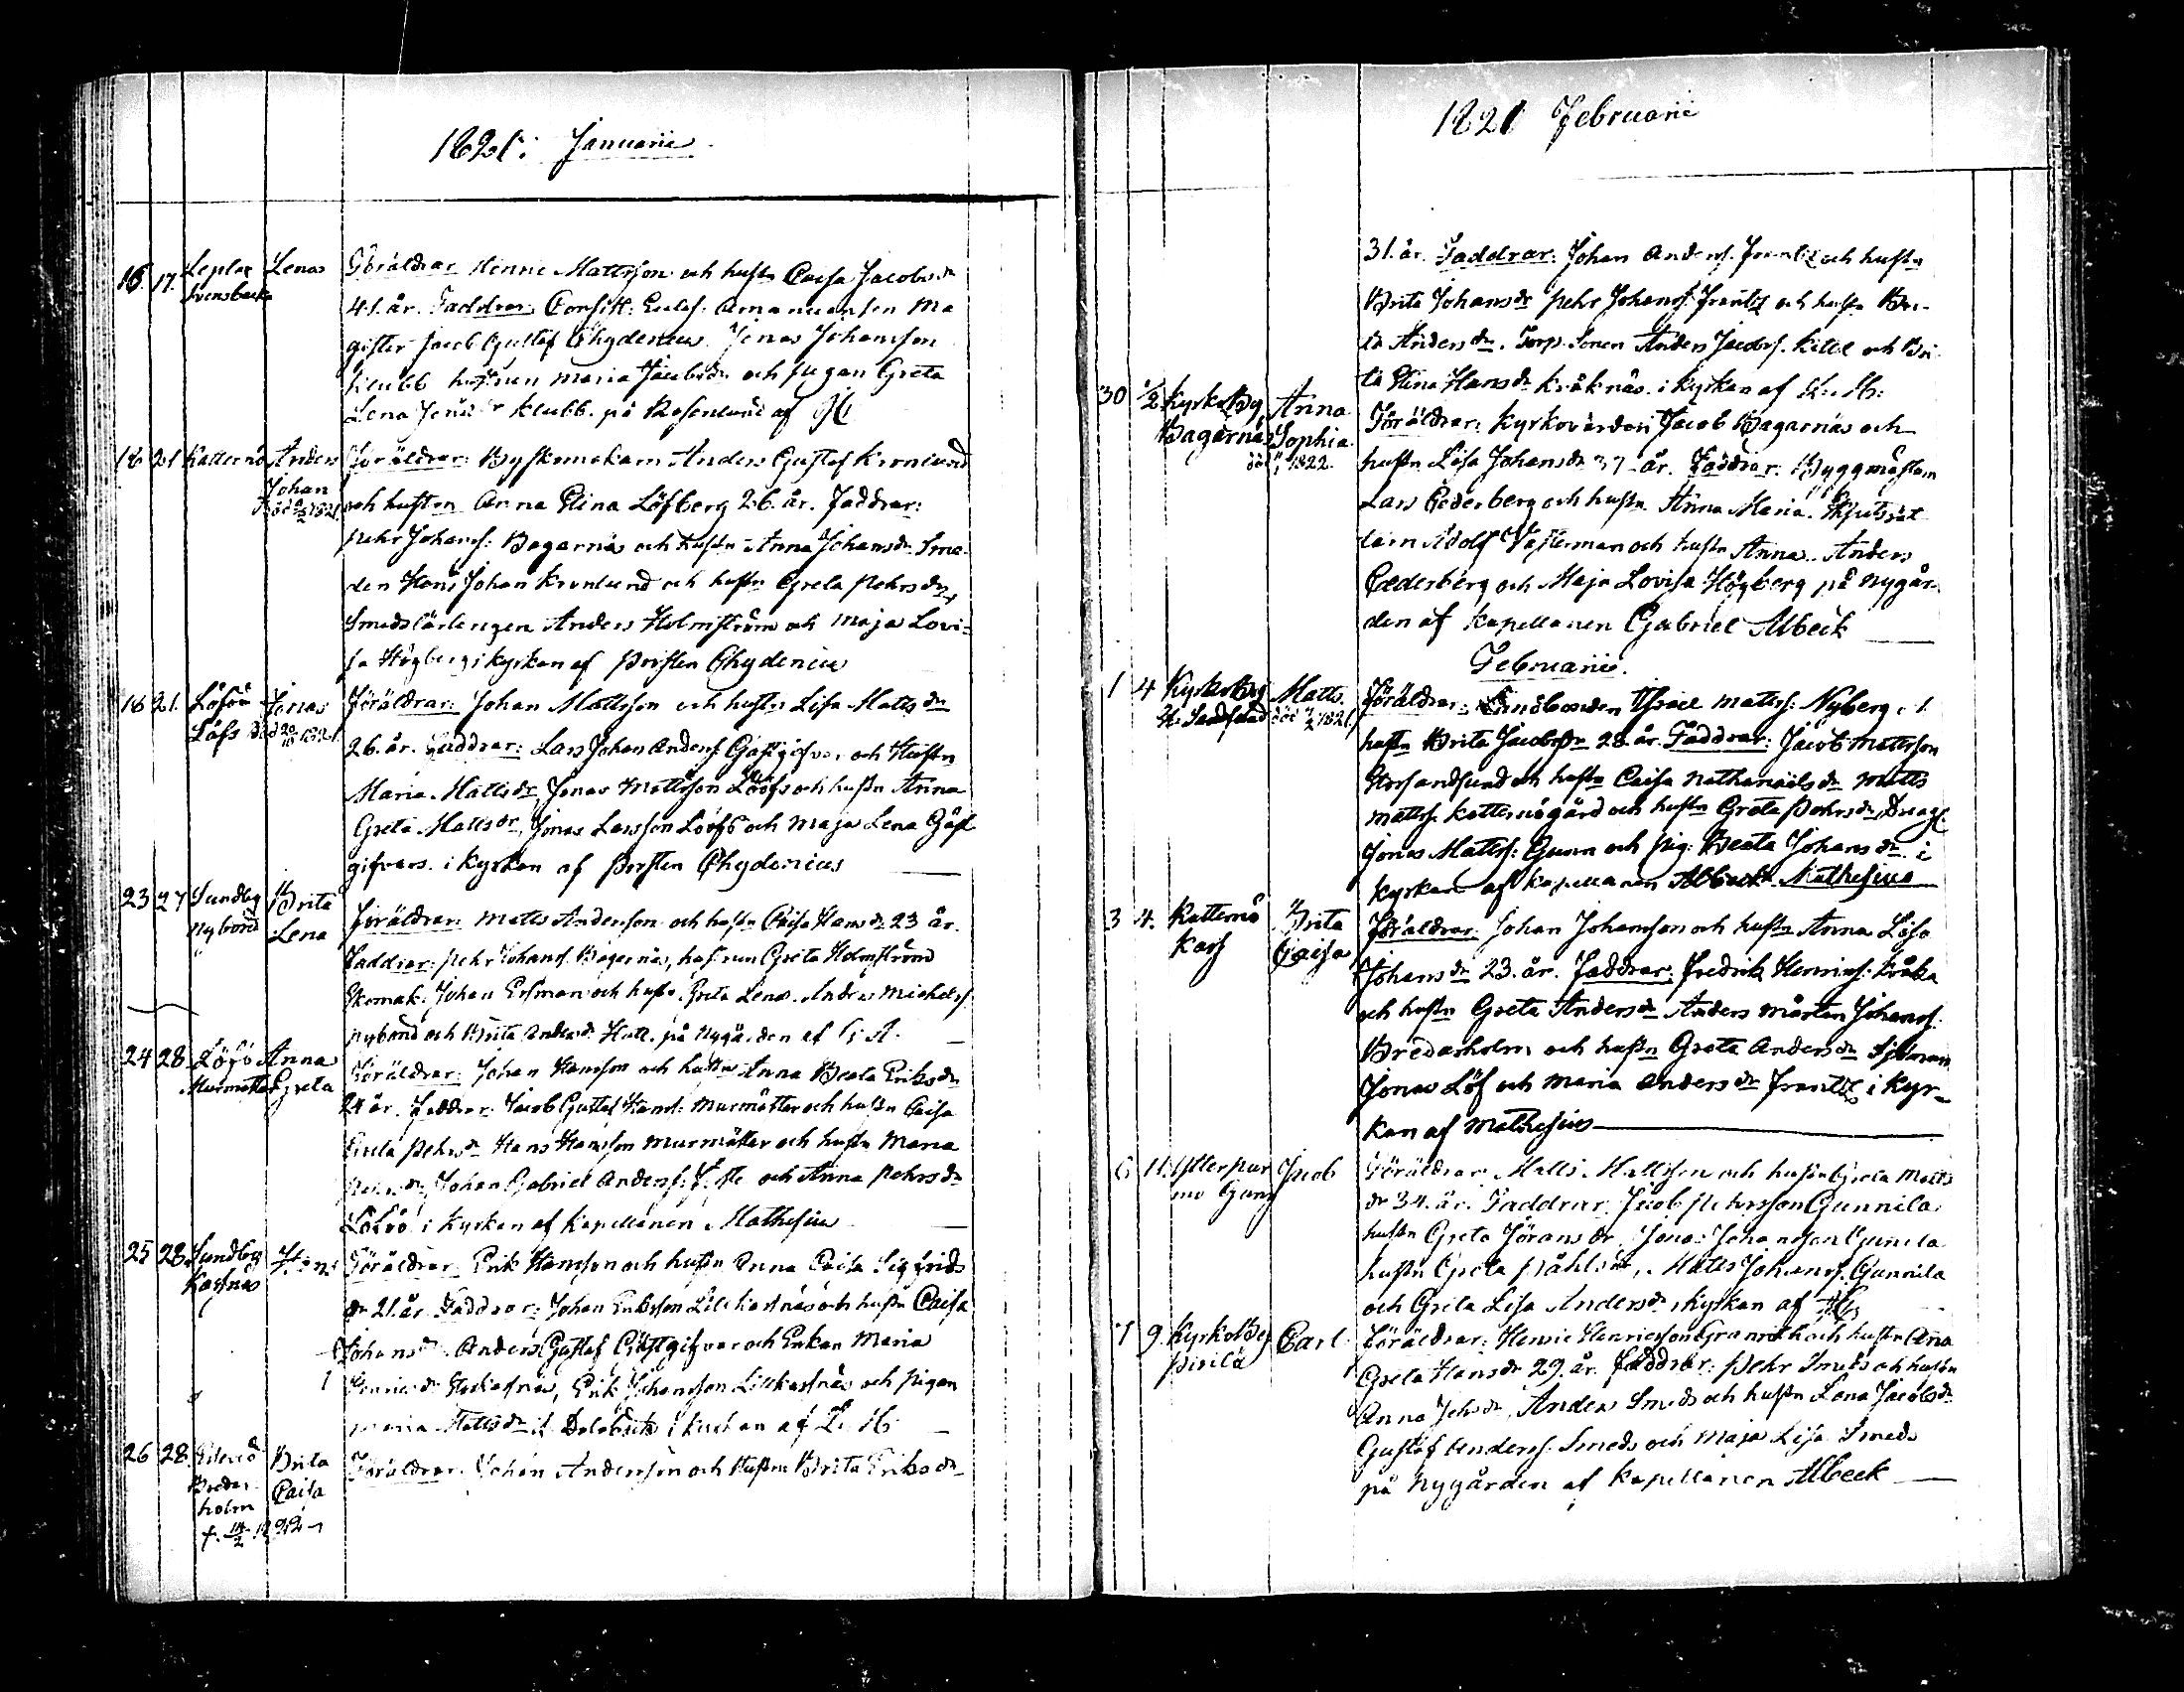 1821: Januarii
16. 17. Leplax Lena Föräldrar Hinric Mattsson och hustr Caisa Jacobsdr
Svensbacka 41. år. Faddrar: Amanuensen Ma
gister Jacob Gustaf Chydenius. Jonas Johansson
Klubb hustrun Maria Jacobsdr och pigan Greta
Lena Klubb. på Rosenlund af
18 21 Katternö Anders Föräldrar: Anders Gustaf Kronlund
Johan
död 1821. och hustrn Anna Elina Löfberg 26. år. Faddrar:
Pehr Johans: Bagarnäs och hustr Anna Johansdr Sme-
den Hans Johan Kronlund och hustr Greta Pehrsdr,
Smedslärlingen Anders Holmström och Maja Lovi=
sa Högberg i kyrkan af Prosten Chydenius
18 21. Löfö Jonas Föräldrar: Johan Mattsson och hustr Lisa Mattsdr
Löfs död 20/10 1821.
26. år. Faddrar: Lars Johan Anders Gästgifvar och Hustr
Maria Mattsdr, Jonas Mattsson Löfs och hustr Anna
Greta Mattsdr, Jonas Larsson Löfs och Maja Lena Gäst
gifvars. i kyrkan af Prosten Chydenius
23 27 Sundby Brita
Nybond Lena Föräldrar: Matts Andersson och hustr Caisa Hansdr 23 år.
Faddrar: Pehr Johans. Bagernäs, hustrun Greta Holmström
Skomak: Johan och hustr. Greta Lena. Anders Michelss.
Nybond och Brita Andersdr på Nygården af G. A.
24 28 Löfö Anna Föräldrar: Johan Hansson och hustr Anna Beata Eriksdr
Murmäster Greta
24 år. Faddrar: Jacob Gustaf Hans: Murmäster och hustr Caisa
Greta Pehrsdr Hans Hansson Murmäster och hustr Maria
Johan Gabriel Anders: och Anna Pehrsdr
Löfö i kyrkan af Kapellanen Mathesius
25 28. Sundby Föräldrar: Erik Hansson och hustr Anna Caisa Sigfrids
Karsnäs
dr 21. år. Faddrar: Johan Eriksson Lillkarsnäs och hustr Caisa
Johansdr. Anders Gustaf Gästgifvar och Enkan Maria
Erik Johansson Lillkarsnäs och pigan
Maria Mattsdr i kyrkan af
26 28 Brita Föräldrar: Johan Andersson och Hustru Brita Eriksdr
Breder- Caisa
holm
†. 14/2 1822
1821 Februarii
31. år. Faddrar: Johan Anders. Frantz och hustr
Brita Johansdr Pehr Johans: Frantz och hustr Bri-
ta Andersdr. Torp. Sonen Anders Jacobs. Kittel och Bri
ta Elina Hansdr Kråknäs. i Kyrkan af
30 1/2 KyrkoBy Anna
Bagarnäs Sophia
död 1822.
Föräldrar: Kyrkovärden Jacob Bagarnäs och
hustr Lisa Johansdr 37. år. Faddrar: Byggmästarn
Lars Cederberg och hustr Anna Maria.
Adolf Westerman och hustr Anna. Anders
Cederberg och Maja Lovisa Högberg på Nygår-
den af Kapellanen Gabriel Albeck
Februarii.
1 4 KyrkoBy Matts. Föräldrar: Landbonden Israel Matts: Nyberg
St. Sandsund död 1821.
hustr Brita Jacobsdr 28. år. Faddrar: Jacob Mattsson
Storsandsund och hustr Caisa Nathanaelsdr Matts
Matts. Katternögård och hustr Greta Pehrsdr,
Jonas Matts: Gunn och pig: Beata Johansdr. i
Kyrkan af Kapellanen Mathesius
3 4. Katternö Brita Föräldrar: Johan Johansson och hustr Anna Lisa
Kass Caisa
Johansdr 23. år. Faddrar: Fredrik Henrics:
och hustr Greta Andersdr Anders Mårten Johans.
Bredarholm och hustr Greta Andersdr Sjöman
Jonas Löf och Maria Andersdr Frantz i Kyr-
kan af Mathesius
6 11. Ytterpur Jacob Föräldrar: Matts Mattsson och hustr Greta Matts
mo
dr 34. år. Faddrar: Jacob Pehrsson Gunnila
hustr Greta Jöransdr, Jonas Johansson Gunila
hustr Greta Påhlsdr, Matts Johans. Gunnila
och Greta Lisa Andersdr i kyrkan af
7 9. KyrkoBy Carl. Föräldrar: Henric Henricsson och hustr Ana
Pirilä
Greta Hansdr 29. år. Faddrar: Pehr Smeds och hustr
Anna Anders Smeds och hustr Lena Jacobsdr
Gustaf Anders: Smeds och Maja Lisa Smeds
på Nygården af Kapellanen Albeck